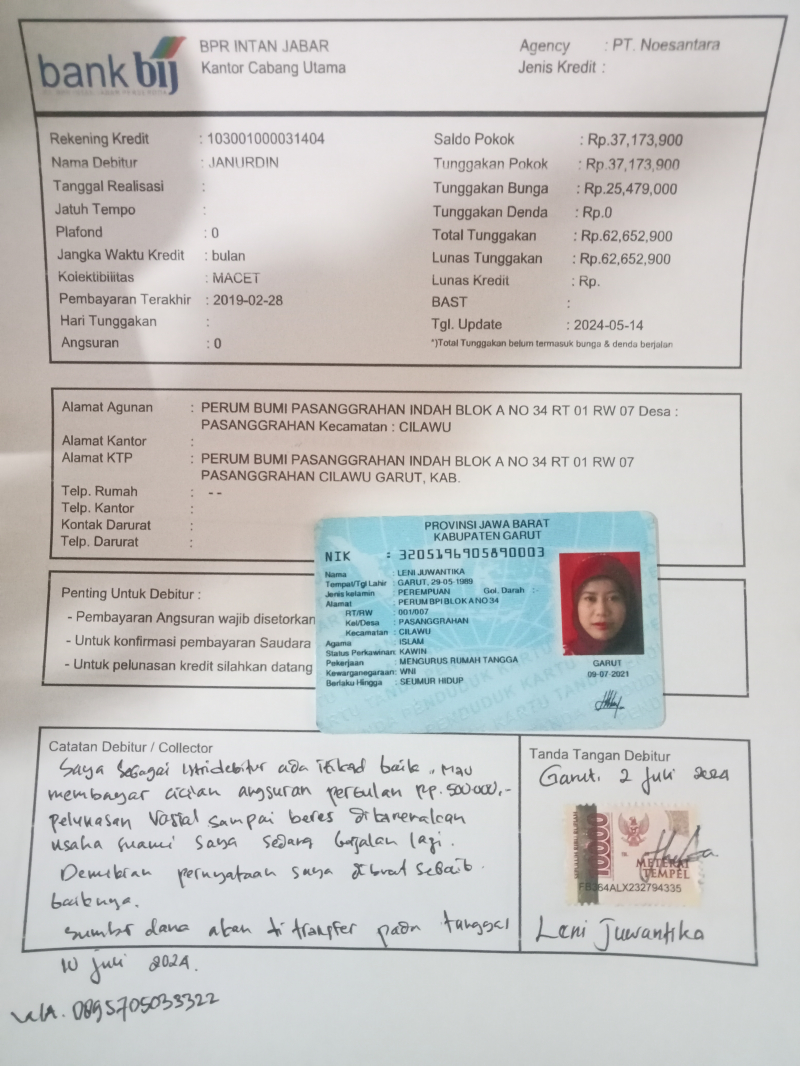 bank bij
BPR INTAN JABAR
Kantor Cabang Utama
Agency : PT. Noesantara
Jenis Kredit :
Rekening Kredit : 103001000031404
Nama Debitur : JANURDIN
Tanggal Realisasi :
Jatuh Tempo :
Plafond : 0
Jangka Waktu Kredit : bulan
Kolektibilitas : MACET
Pembayaran Terakhir : 2019-02-28
Hari Tunggakan :
Angsuran : 0
Saldo Pokok : Rp.37,173,900
Tunggakan Pokok : Rp.37,173,900
Tunggakan Bunga : Rp.25,479,000
Tunggakan Denda : Rp.0
Total Tunggakan : Rp.62,652,900
Lunas Tunggakan : Rp.62,652,900
Lunas Kredit : Rp.
BAST :
Tgl. Update : 2024-05-14
*)Total Tunggakan belum termasuk bunga & denda berjalan
Alamat Agunan : PERUM BUMI PASANGGRAHAN INDAH BLOK A NO 34 RT 01 RW 07 Desa :
PASANGGRAHAN Kecamatan : CILAWU
Alamat Kantor :
Alamat KTP : PERUM BUMI PASANGGRAHAN INDAH BLOK A NO 34 RT 01 RW 07
PASANGGRAHAN CILAWU GARUT, KAB.
Telp. Rumah : --
Telp. Kantor :
Kontak Darurat :
Telp. Darurat :
Penting Untuk Debitur :
- Pembayaran Angsuran wajib disetorkan
- Untuk konfirmasi pembayaran Saudara
- Untuk pelunasan kredit silahkan datang
PROVINSI JAWA BARAT
KABUPATEN GARUT
NIK : 3205196905890003
Nama : LENI JUWANTIKA
Tempat/Tgl Lahir : GARUT, 29-05-1989
Jenis kelamin : PEREMPUAN Gol. Darah :-
Alamat : PERUM BPI BLOK A NO 34
RT/RW : 001/007
Kel/Desa : PASANGGRAHAN
Kecamatan : CILAWU
Agama : ISLAM
Status Perkawinan: KAWIN
Pekerjaan : MENGURUS RUMAH TANGGA
Kewarganegaraan: WNI
Berlaku Hingga : SEUMUR HIDUP
GARUT
09-07-2021
Catatan Debitur / Collector
Saya sebagai istri debitur ada itikad baik,, mau
membayar cicilan angsuran perbulan Rp. 500.000,-
pelunasan sampai beres
usaha suami saya sedang berjalan lagi.
Demikian pernyataan saya dibuat sebaik
baiknya.
Sumber dana akan di transfer pada tanggal
10 juli 2024.
WA. 0895705033322
Tanda Tangan Debitur
Garut, 2 Juli 2024
10000
METERAI
TEMPEL
FB364ALX232794335
Leni Juwantika